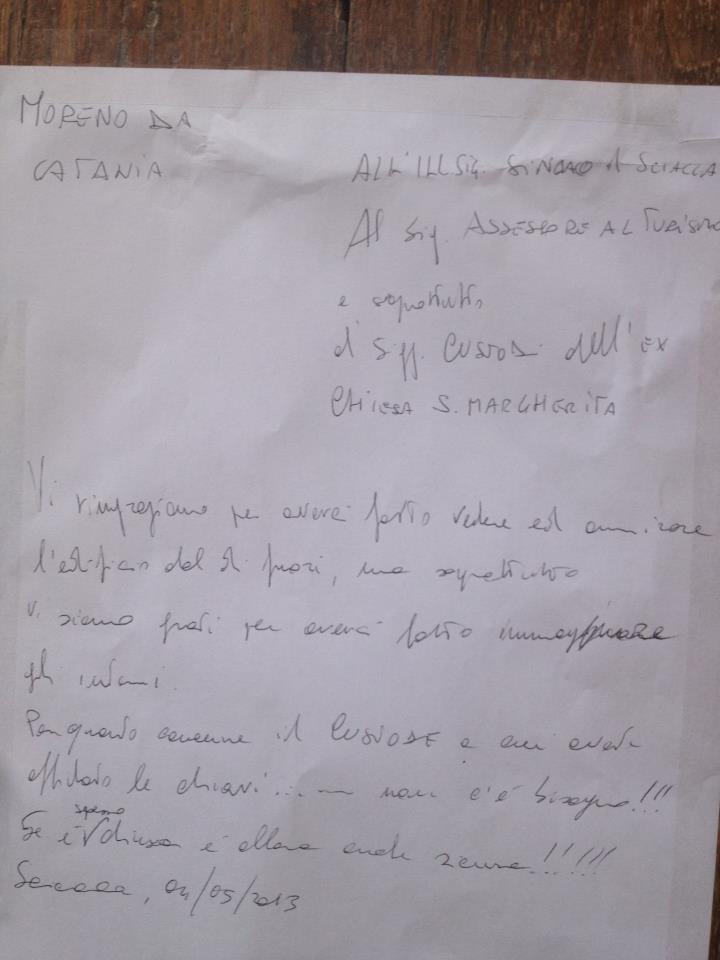 MORENO DA
CATANIA
ALL'ILL SIG. SINDACO di SCIACCA
Al Sig. ASSESSORE AL TURISMO
e sopratutto
ai Sigg. CUSTODI dell'EX
CHIESA S. MARGHERITA
Vi ringraziamo per averci fatto vedere ed ammirare
l'edificio dal di fuori, ma sopratutto
Vi siamo grati per averci fatto immaginare
gli interni.
Per quanto concerne il CUSTODE a cui avete
affidato le chiavi...... non c'è bisogno!!!
Se è spesso chiusa è allora anche !!!!!
Sciacca, 04/05/2013